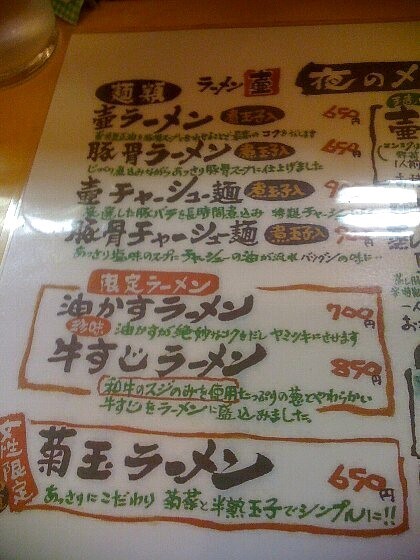 麺類 ラーメン 壷 夜のメ
壷ラーメン 煮玉子入 650円
豚骨ラーメン 煮玉子入 650円
じっくり煮込みながらあっさり豚骨スープに仕上げました
壷チャーシュー麺 煮玉子入
豚バラを長時間煮込み 特製チャーシュー
豚骨チャーシュー麺 煮玉子入
あっさり塩味のスープ チャーシューの油が バツグンの味に…
限定ラーメン
油かすラーメン 700円
珍味 油かすが絶妙なコクをだしヤミツキにさせます
牛すじラーメン 850円
和牛のスジのみを使用 たっぷりの葱とやわらかい
牛すじをラーメンに盛込みました。
女性限定
菊玉ラーメン 650円
あっさりにこだわり 菊菜と半熟玉子でシンプルに!!